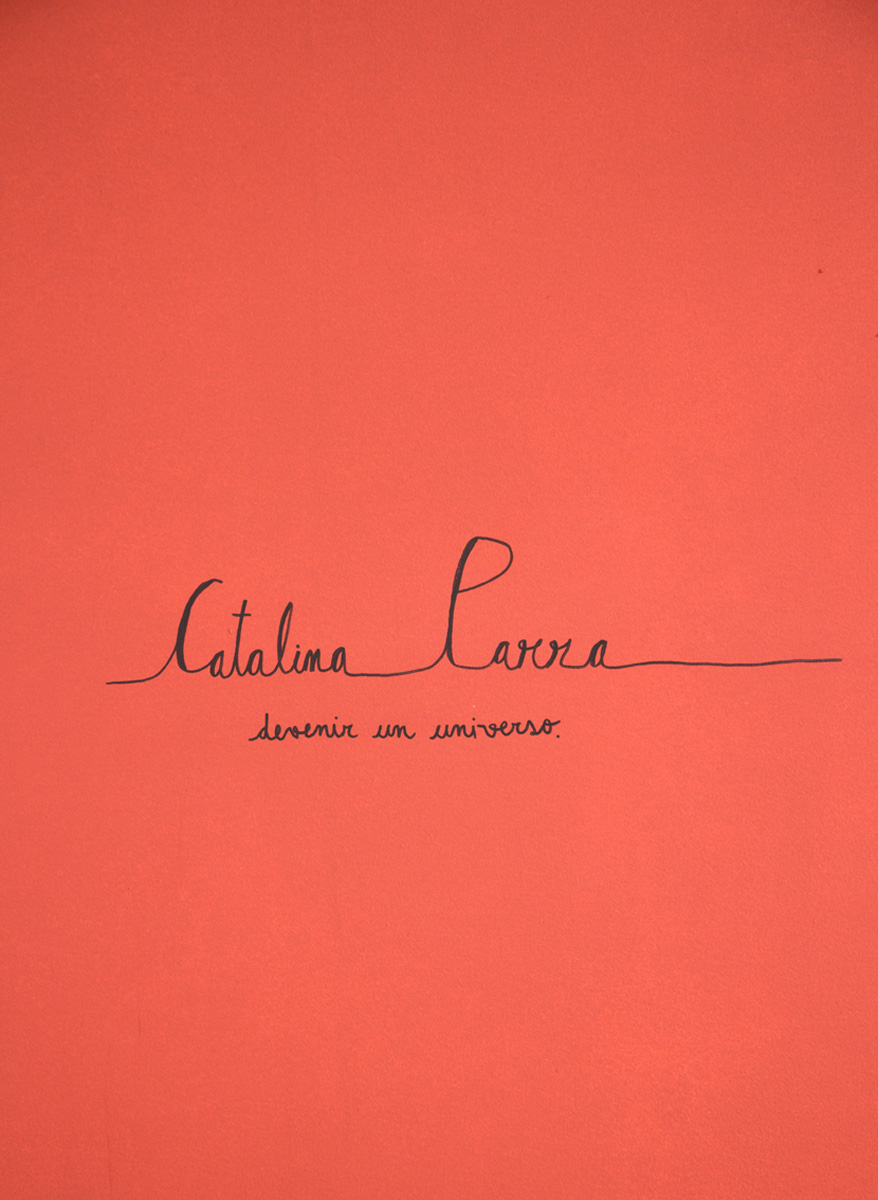 Catalina Parra
devenir un universo.